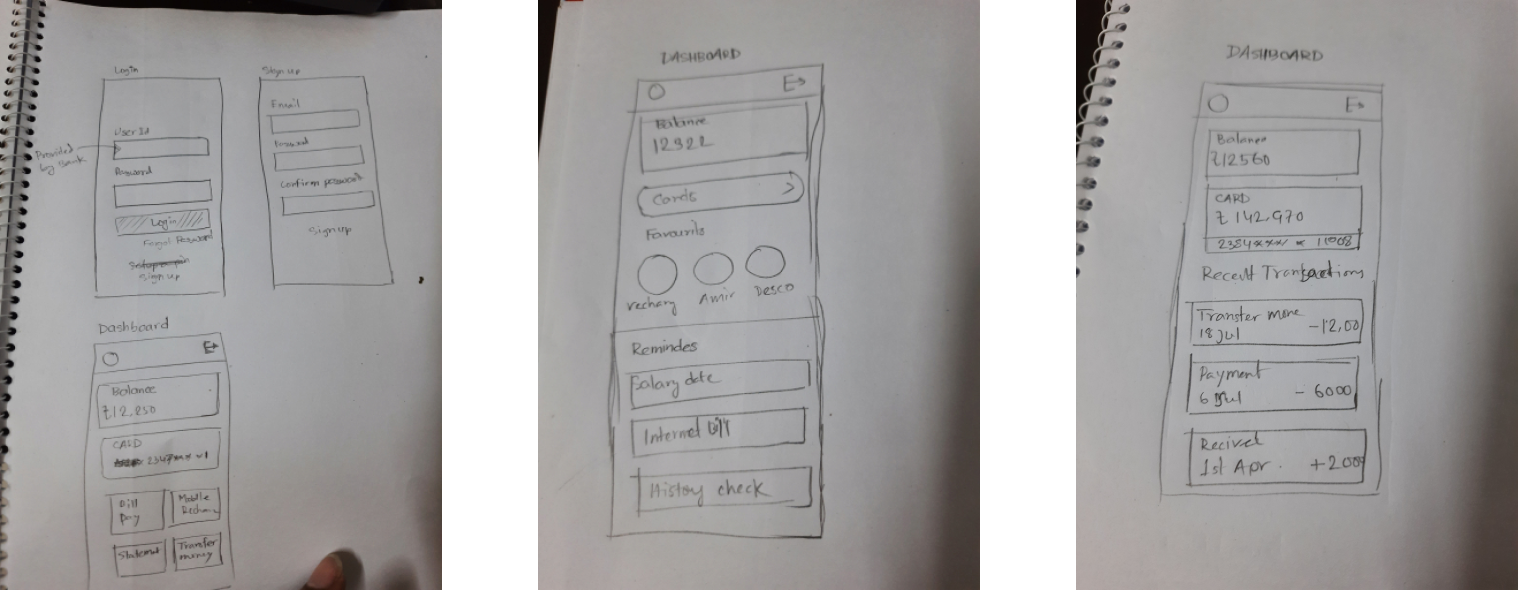 Login
User Id
Provided by Bank
Password
Login
Forgot Password
Sign up
Sign up
Email
Password
Confirm password
Sign up
Dashboard
Balance
₹12,250
CARD
Bill Pay
Mobile
Transfer money
DASHBOARD
Balance
12322
Cards
Favourits
Amir
Desco
Remindes
Salary date
Internet Bill
History check
DASHBOARD
Balance
₹12560
CARD
₹142,970
2384xxxx x 11008
Recent Transactions
Transfer mone
18 Jul -12,00
Payment
6 Jul - 6000
Recivel
1st Apr. +2000